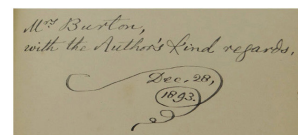 Mrs Burton,
with the Author's kind regards.
Dec. 28,
1893.